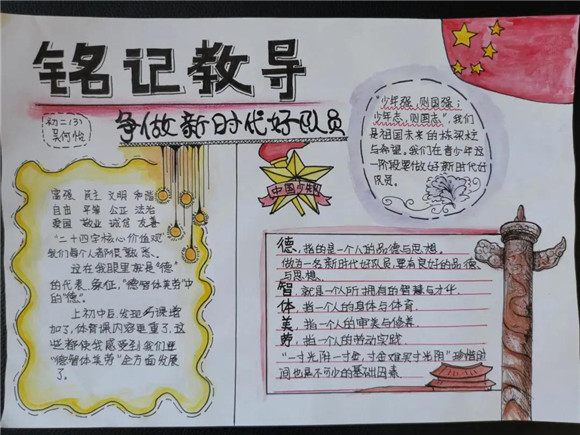 铭记教导
争做新时代好队员
初二(3)
吴何怡
富强 民主 文明 和谐
自由 平等 公正 法治
爱国 敬业 诚信 友善
"二十四字核心价值观"
我们每个人者阿熟悉、
这在我眼里就是"德"
的代表、象征,"德智体美劳"中
的"德"。
上初中后,发现多课增
加了,体育课内容更重了,这
些都使我感受到我们更
"德智体美劳"全方面发展
了。
中国少先队
"少年强,则国强;
少年志,则国志",我们
是祖国未来的栋梁柱
与希望。我们在青少年这
一阶段要做好新时代好
队员。
德,指的是一个人的品德与思想。
做为一名新时代好队员,要有良好的品德、
与思想。
智,就是一个人所拥有的智慧与才华。
体,指一个人的身体与体育。
美,指一个人的审美与修养。
劳,指一个人的劳动实践。
"一寸光阴一寸金,寸金难买寸光阴"珍惜时
间也是不可少的基础因素。